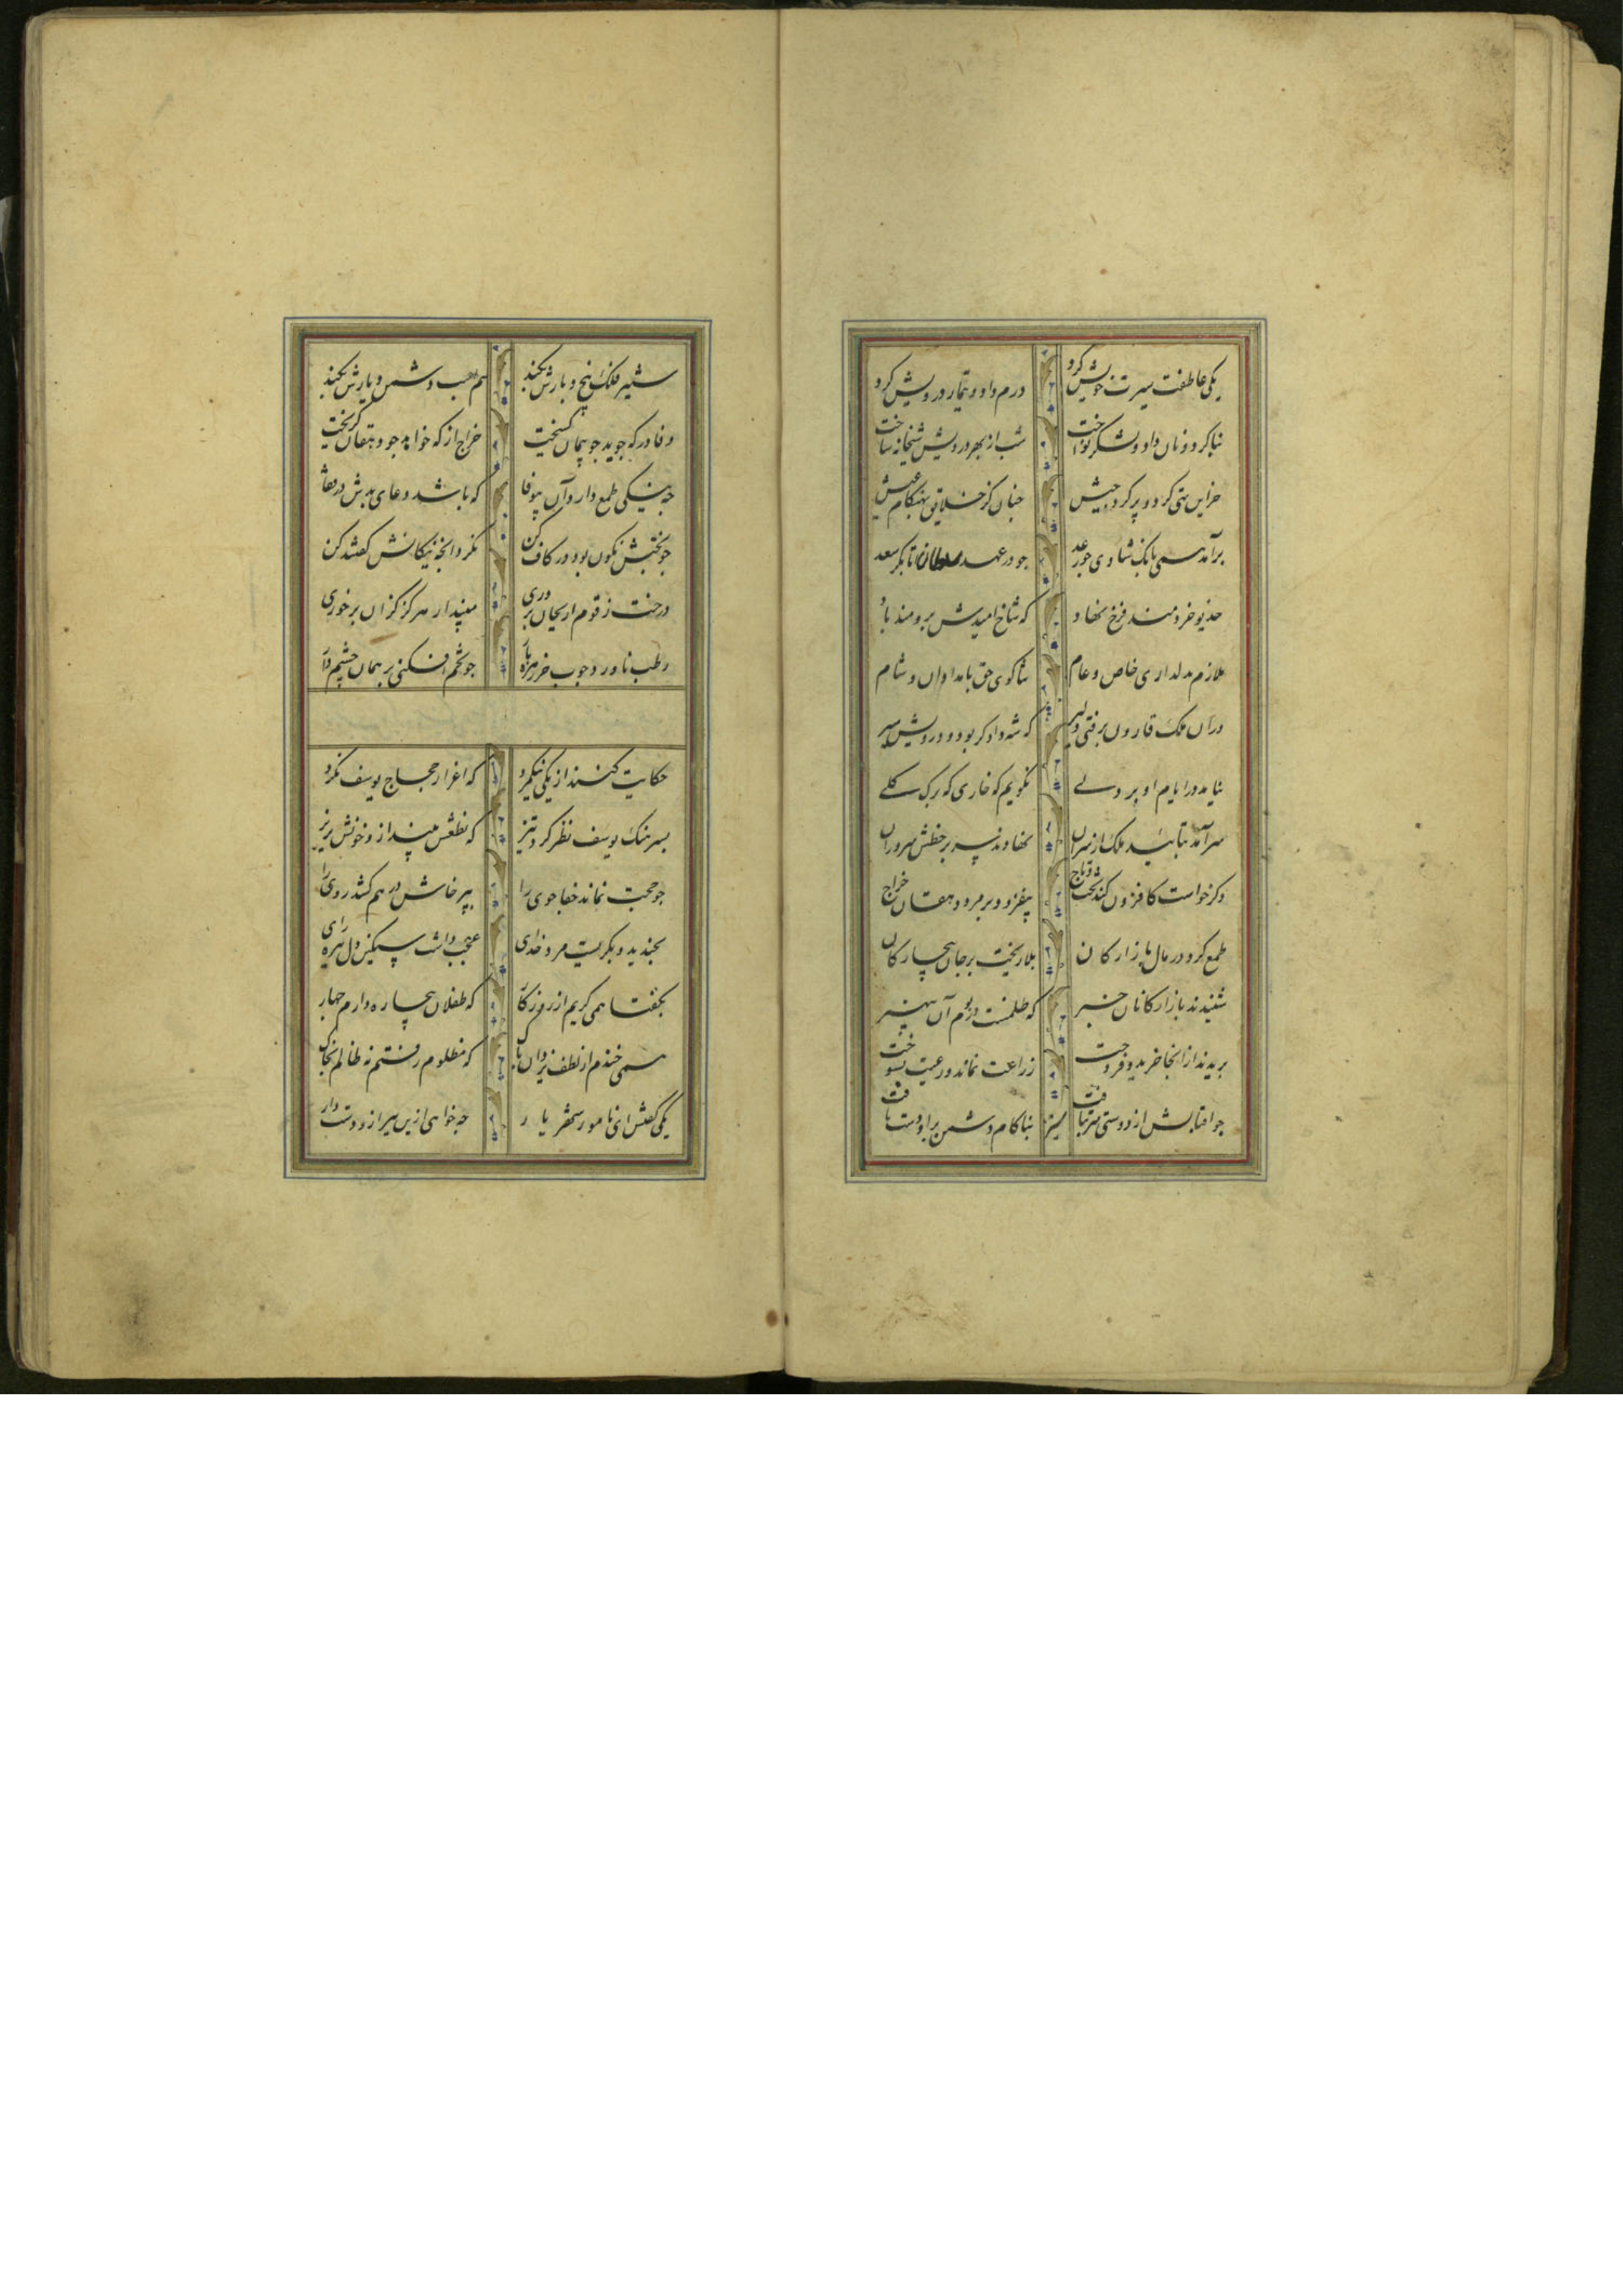 یکی عاطفت سیرت خویش کرد درم داد و تیمار درویش کرد
بنا کرد و نان داد و لشکر نواخت شب از بهر درویش شبخانه ساخت
خزاین تهی کرد و پر کرد جیش چنان کز خلایق بهنگام عیش
برآمد همی بانک شادی چو رعد چو در عهد سلطان اتابک سعد
خدیو خردمند فرخ نهاد که شاخ امیدش برومند باد
ملازم بدلداری خاص و عام ثناکوی حق بامدادان و شام
دران ملک قارون برفتی دلیر که شه دادکر بود و درویش سیر
نیامد در ایام او بر دلی نکویم که خاری که برک کلی
سرآمد بتایید ملک از سران نهادند سر بر خطش سروران
دکر خواست کافزون کند تخت و تاج بیفزود بر مرد دهقان خراج
طمع کرد در مال بازارکان بلا ریخت بر جان بیچارکان
شنیدند بازارکانان خبر که ظلمست در بوم آن بیهنر
بریدند از انجا خرید و فروخت زراعت نماند و رعیت بسوخت
چو اقبالش از دوستی سر بتافت بناکام دشمن برو دست یافت
ستیز فلک بیخ و بارش بکند سم اسب دشمن دیارش بکند
وفا در که جوید چو پیمان کسیخت خراج از که خواهد چو دهقان کریخت
چه نیکی طمع دارد آن بیوفا که باشد دعای بدش در قفا
چو بختش نکون بود در کاف کن نکرد انچه نیکانش کفتند کن
درخت زقوم ار بجان پروری مپندار هرکز کزان بر خوری
رطب ناورد چوب خرزهره بار چو تخم افکنی بر همان چشم دار
حکایت کنند از یکی نیکمرد که اغزار حجاج یوسف نکرد
بسرهنک یوسف نظر کرد تیز که نطعش بینداز و خونش بریز
چو حجت نماند جفاجوی را بپرخاش در هم کشد روی را
بخندید و بکریست مرد خدای عجب داشت سنکین دل تیره رای
بکفتا همی کریم از روزکار که طفلان بیچاره دارم چهار
همی خندم از لطف یزدان پاک که مظلوم رفتم نه ظالم بخاک
یکی کفتش ای نامور شهریار چه خواهی ازین پیر ازو دست دار